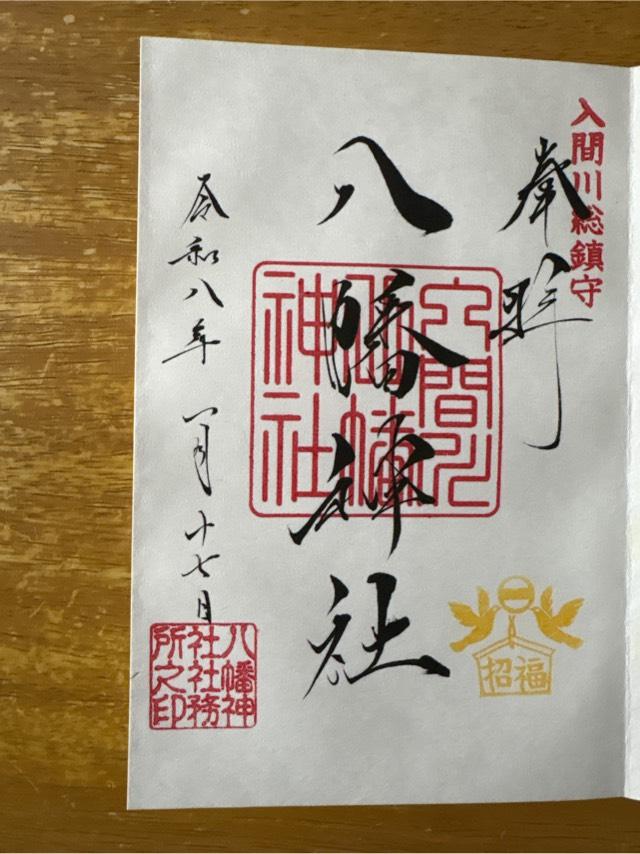 入間川総鎮守
奉拝
八幡神社
入間川
八幡
神社
令和八年 一月十七日
八幡神
社社務
所之印
招福